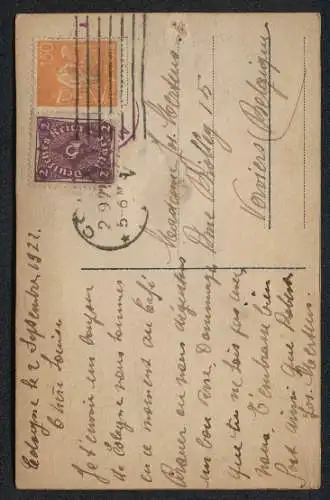 Cologne le 2 September 1922.
Chère Louise
Je t'envoie un bonjour
de Cologne nous sommes
en ce moment au Café
Bauer ou nous dégustons
un bon verre. Dommage
que tu ne sois pas avec
nous. T'embrasse bien
fort ainsi que
Jos. Mertens.
Madame Jos. Mertens
Rue 15
Verviers (Belgique)
150
Deutsches Reich
2 2
2 9 22
5-6 N